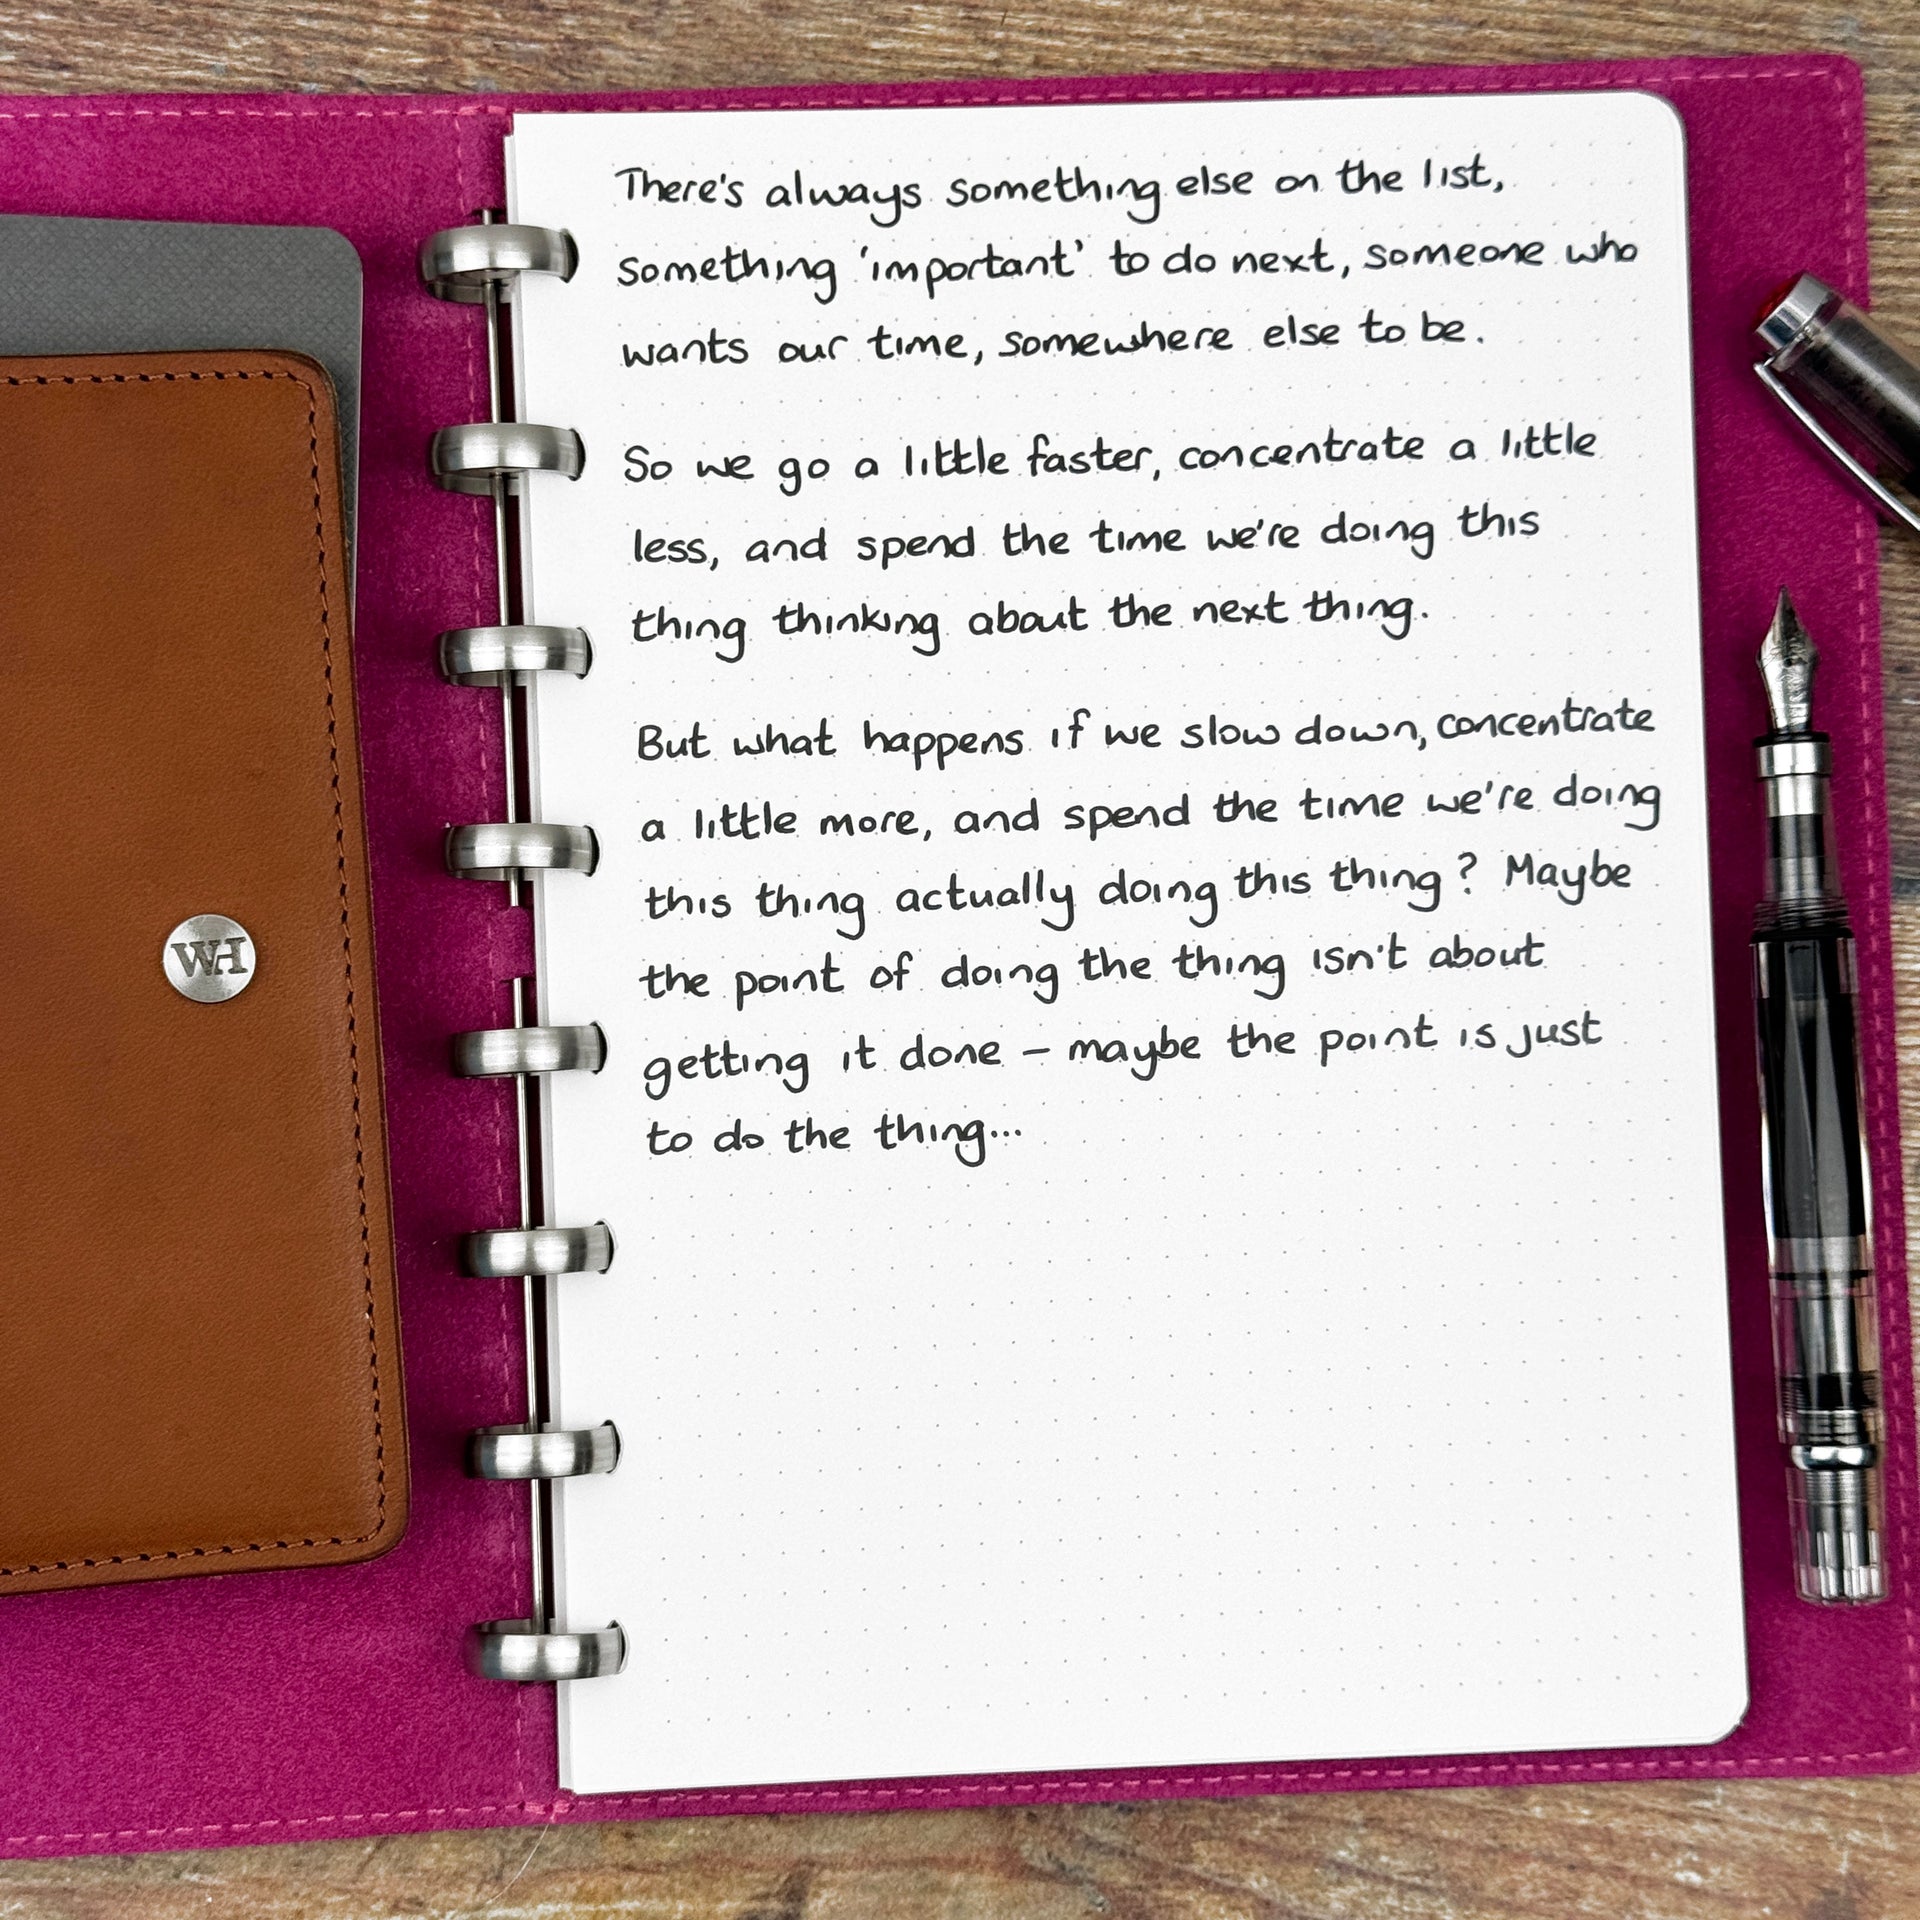 There's always something else on the list,
something 'important' to do next, someone who
wants our time, somewhere else to be.
So we go a little faster, concentrate a little
less, and spend the time we're doing this
thing thinking about the next thing.
But what happens if we slow down, concentrate
a little more, and spend the time we're doing
this thing actually doing this thing? Maybe
the point of doing the thing isn't about
getting it done – maybe the point is just
to do the thing...
WH